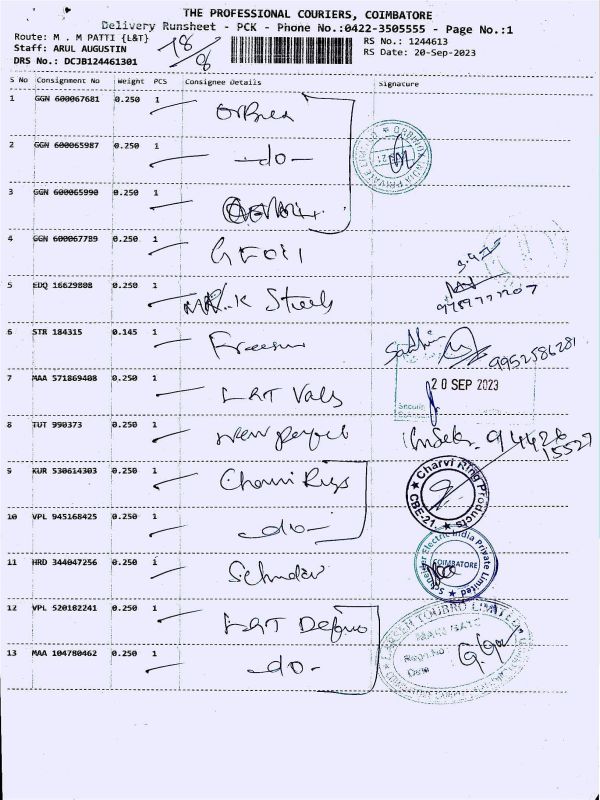 THE PROFESSIONAL COURIERS, COIMBATORE
Delivery Runsheet - PCK - Phone No.:0422-3505555 - Page No.:1
Route: M . M PATTI {L&T}
Staff: ARUL AUGUSTIN
DRS No.: DCJB124461301
18/8
RS No.: 1244613
RS Date: 20-Sep-2023
S No Consignment No Weight PCS Consignee Details Signature
1 GGN 600067681 0.250 1
2 GGN 600065987 0.250 1 -do-
3 GGN 600065990 0.250 1
4 GGN 600067789 0.250 1
5 EDQ 16629808 0.250 1 K Steels
6 STR 184315 0.145 1 9952586281
20 SEP 2023
7 MAA 571869408 0.250 1 L&T Vals
8 TUT 990373 0.250 1 New perfect 94426 15527
9 KUR 530614303 0.250 1 Charvi Rings
Charvi Ring Products
CBE-21.
10 VPL 945168425 0.250 1 -do-
Schneider Electric India Private Limited
COIMBATORE
11 HRD 344047256 0.250 1
12 VPL 520182241 0.250 1 L&T
LARSEN & TOUBRO LIMITED
MAIN GATE
Regn.No
Date
13 MAA 104780462 0.250 1 -do-